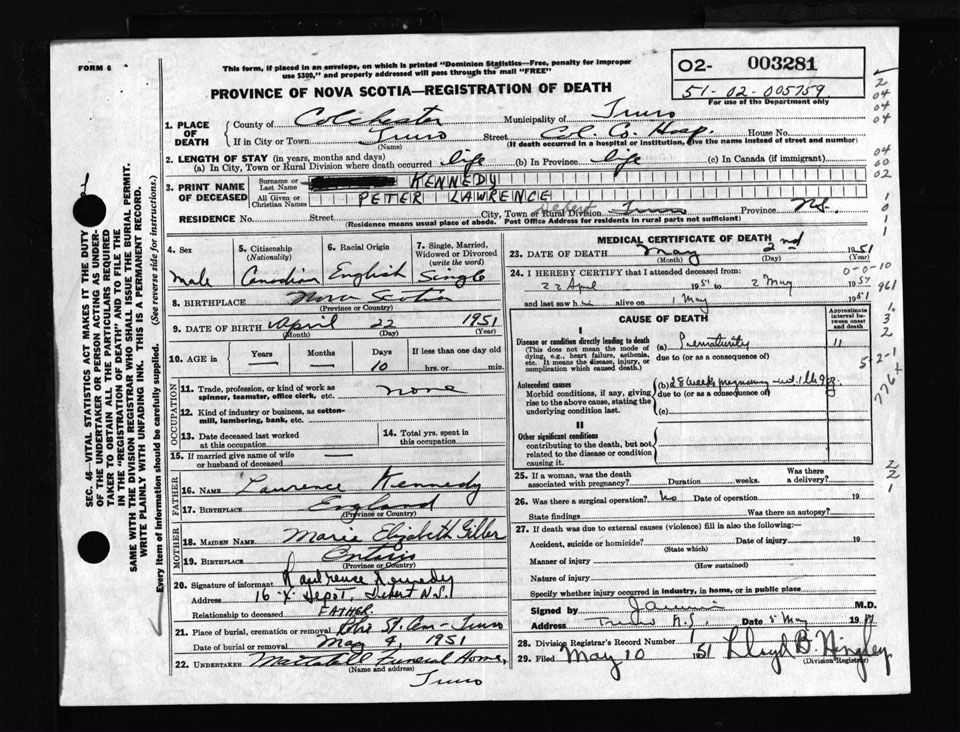 FORM 6
This form, if placed in an envelope, on which is printed "Dominion Statistics—Free, penalty for improper
use $300," and properly addressed will pass through the mail "FREE"
O2- 003281
51-02-005759
For use of the Department only
PROVINCE OF NOVA SCOTIA—REGISTRATION OF DEATH
1. PLACE OF DEATH { County of Colchester Municipality of Truro
If in City or Town Truro Street Col. Co. Hosp. House No.
(Name) (If death occurred in a hospital or institution, give the name instead of street and number)
2. LENGTH OF STAY (in years, months and days)
(a) In City, Town or Rural Division where death occurred life (b) In Province life (c) In Canada (if immigrant)
3. PRINT NAME OF DECEASED { Surname or Last Name KENNEDY
All Given or Christian Names PETER LAWRENCE
RESIDENCE No. Street City, Town or Rural Division Debert Truro Province N.S.
(Residence means usual place of abode. Post Office Address for residents in rural parts not sufficient)
4. Sex 5. Citizenship (Nationality) 6. Racial Origin 7. Single, Married, Widowed or Divorced (write the word)
Male Canadian English Single
8. BIRTHPLACE Nova Scotia
(Province or Country)
9. DATE OF BIRTH April 22 1951
(Month) (Day) (Year)
10. AGE in Years Months Days If less than one day old
— — 10 hrs. or min.
OCCUPATION
11. Trade, profession, or kind of work as spinner, teamster, office clerk, etc. none
12. Kind of industry or business, as cotton-mill, lumbering, bank, etc.
13. Date deceased last worked at this occupation 14. Total yrs. spent in this occupation
15. If married give name of wife or husband of deceased —
FATHER
16. NAME Lawrence Kennedy
17. BIRTHPLACE England
(Province or Country)
MOTHER
18. MAIDEN NAME Marie Elizabeth
19. BIRTHPLACE Ontario
(Province or Country)
20. Signature of informant Lawrence Kennedy
Address 16-X Depot, Debert N.S.
Relationship to deceased FATHER.
21. Place of burial, cremation or removal Truro
Date of burial or removal May 4, 1951
22. UNDERTAKER Funeral Home,
(Name and address)
Truro
MEDICAL CERTIFICATE OF DEATH
23. DATE OF DEATH May 2nd 1951
(Month) (Day) (Year)
24. I HEREBY CERTIFY that I attended deceased from
22 April 1951 to 2 May 1951
and last saw him alive on 1 May 1951
CAUSE OF DEATH
Approximate interval between onset and death
I
Disease or condition directly leading to death
(This does not mean the mode of dying, e.g., heart failure, asthenia, etc. It means the disease, injury, or complication which caused death.)
(a) Prematurity 11
due to (or as a consequence of)
Antecedent causes
Morbid conditions, if any, giving rise to the above cause, stating the underlying condition last.
(b) 28 weeks pregnancy
due to (or as a consequence of)
(c)
II
Other significant conditions
contributing to the death, but not related to the disease or condition causing it.
25. If a woman, was the death associated with pregnancy? Duration weeks. Was there a delivery?
26. Was there a surgical operation? No Date of operation 19
State findings Was there an autopsy?
27. If death was due to external causes (violence) fill in also the following:—
Accident, suicide or homicide? Date of injury 19
(State which)
Manner of injury
(How sustained)
Nature of injury
Specify whether injury occurred in industry, in home, or in public place
Signed by M.D.
Address Truro N.S. Date 5 May 1951
28. Division Registrar's Record Number
29. Filed May 10 1951 Lloyd B. Hingley
(Division Registrar)
SEC. 46—VITAL STATISTICS ACT MAKES IT THE DUTY
OF THE UNDERTAKER OR PERSON ACTING AS UNDER-
TAKER TO OBTAIN ALL THE PARTICULARS REQUIRED
IN THE "REGISTRATION OF DEATH" AND TO FILE THE
SAME WITH THE DIVISION REGISTRAR WHO SHALL ISSUE THE BURIAL PERMIT.
WRITE PLAINLY WITH UNFADING INK. THIS IS A PERMANENT RECORD.
Every item of information should be carefully supplied. (See reverse side for instructions.)
2
04
04
04
04
00
02
0-0-10
961
5-2-1
776+
2
2
1